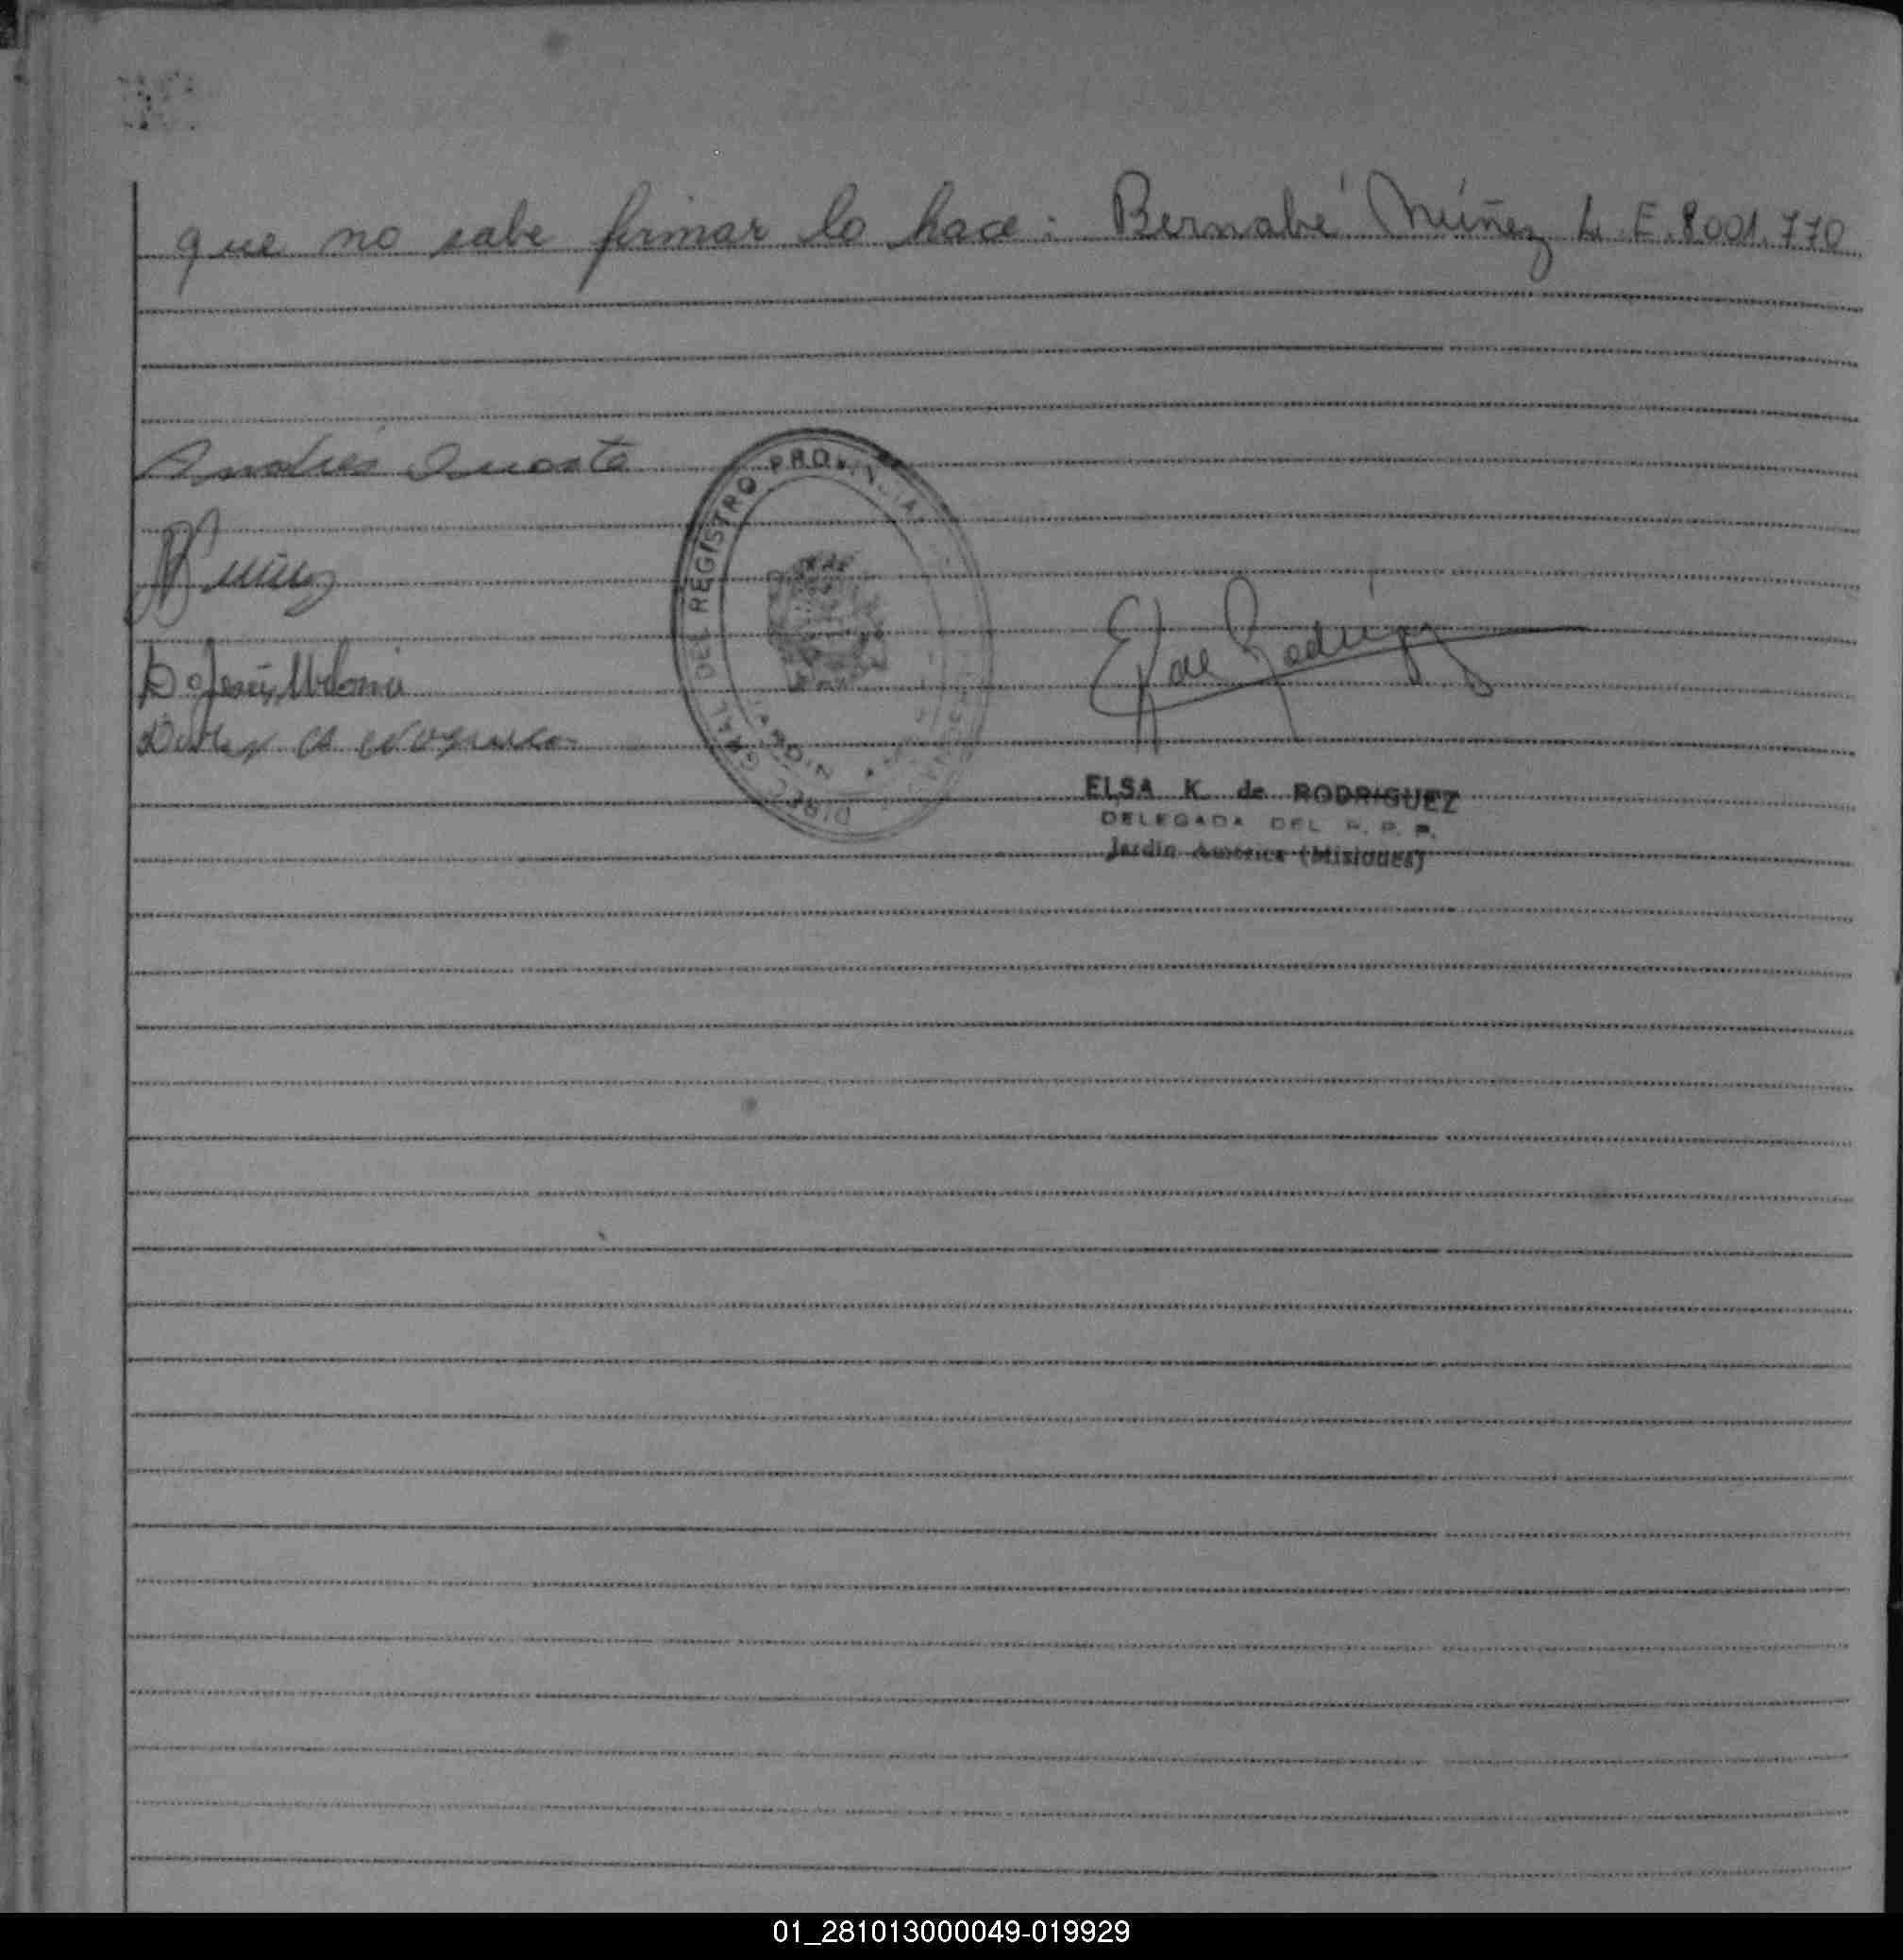 que no sabe firmar lo hace: Bernabé Núñez L.E.8001.770
Andrés
DIREC. GRAL. DEL REGISTRO PROVINCIAL
E K de Rodriguez
ELSA K. de RODRIGUEZ
DELEGADA DEL R. P. P.
Jardín América (Misiones)
01_281013000049-019929